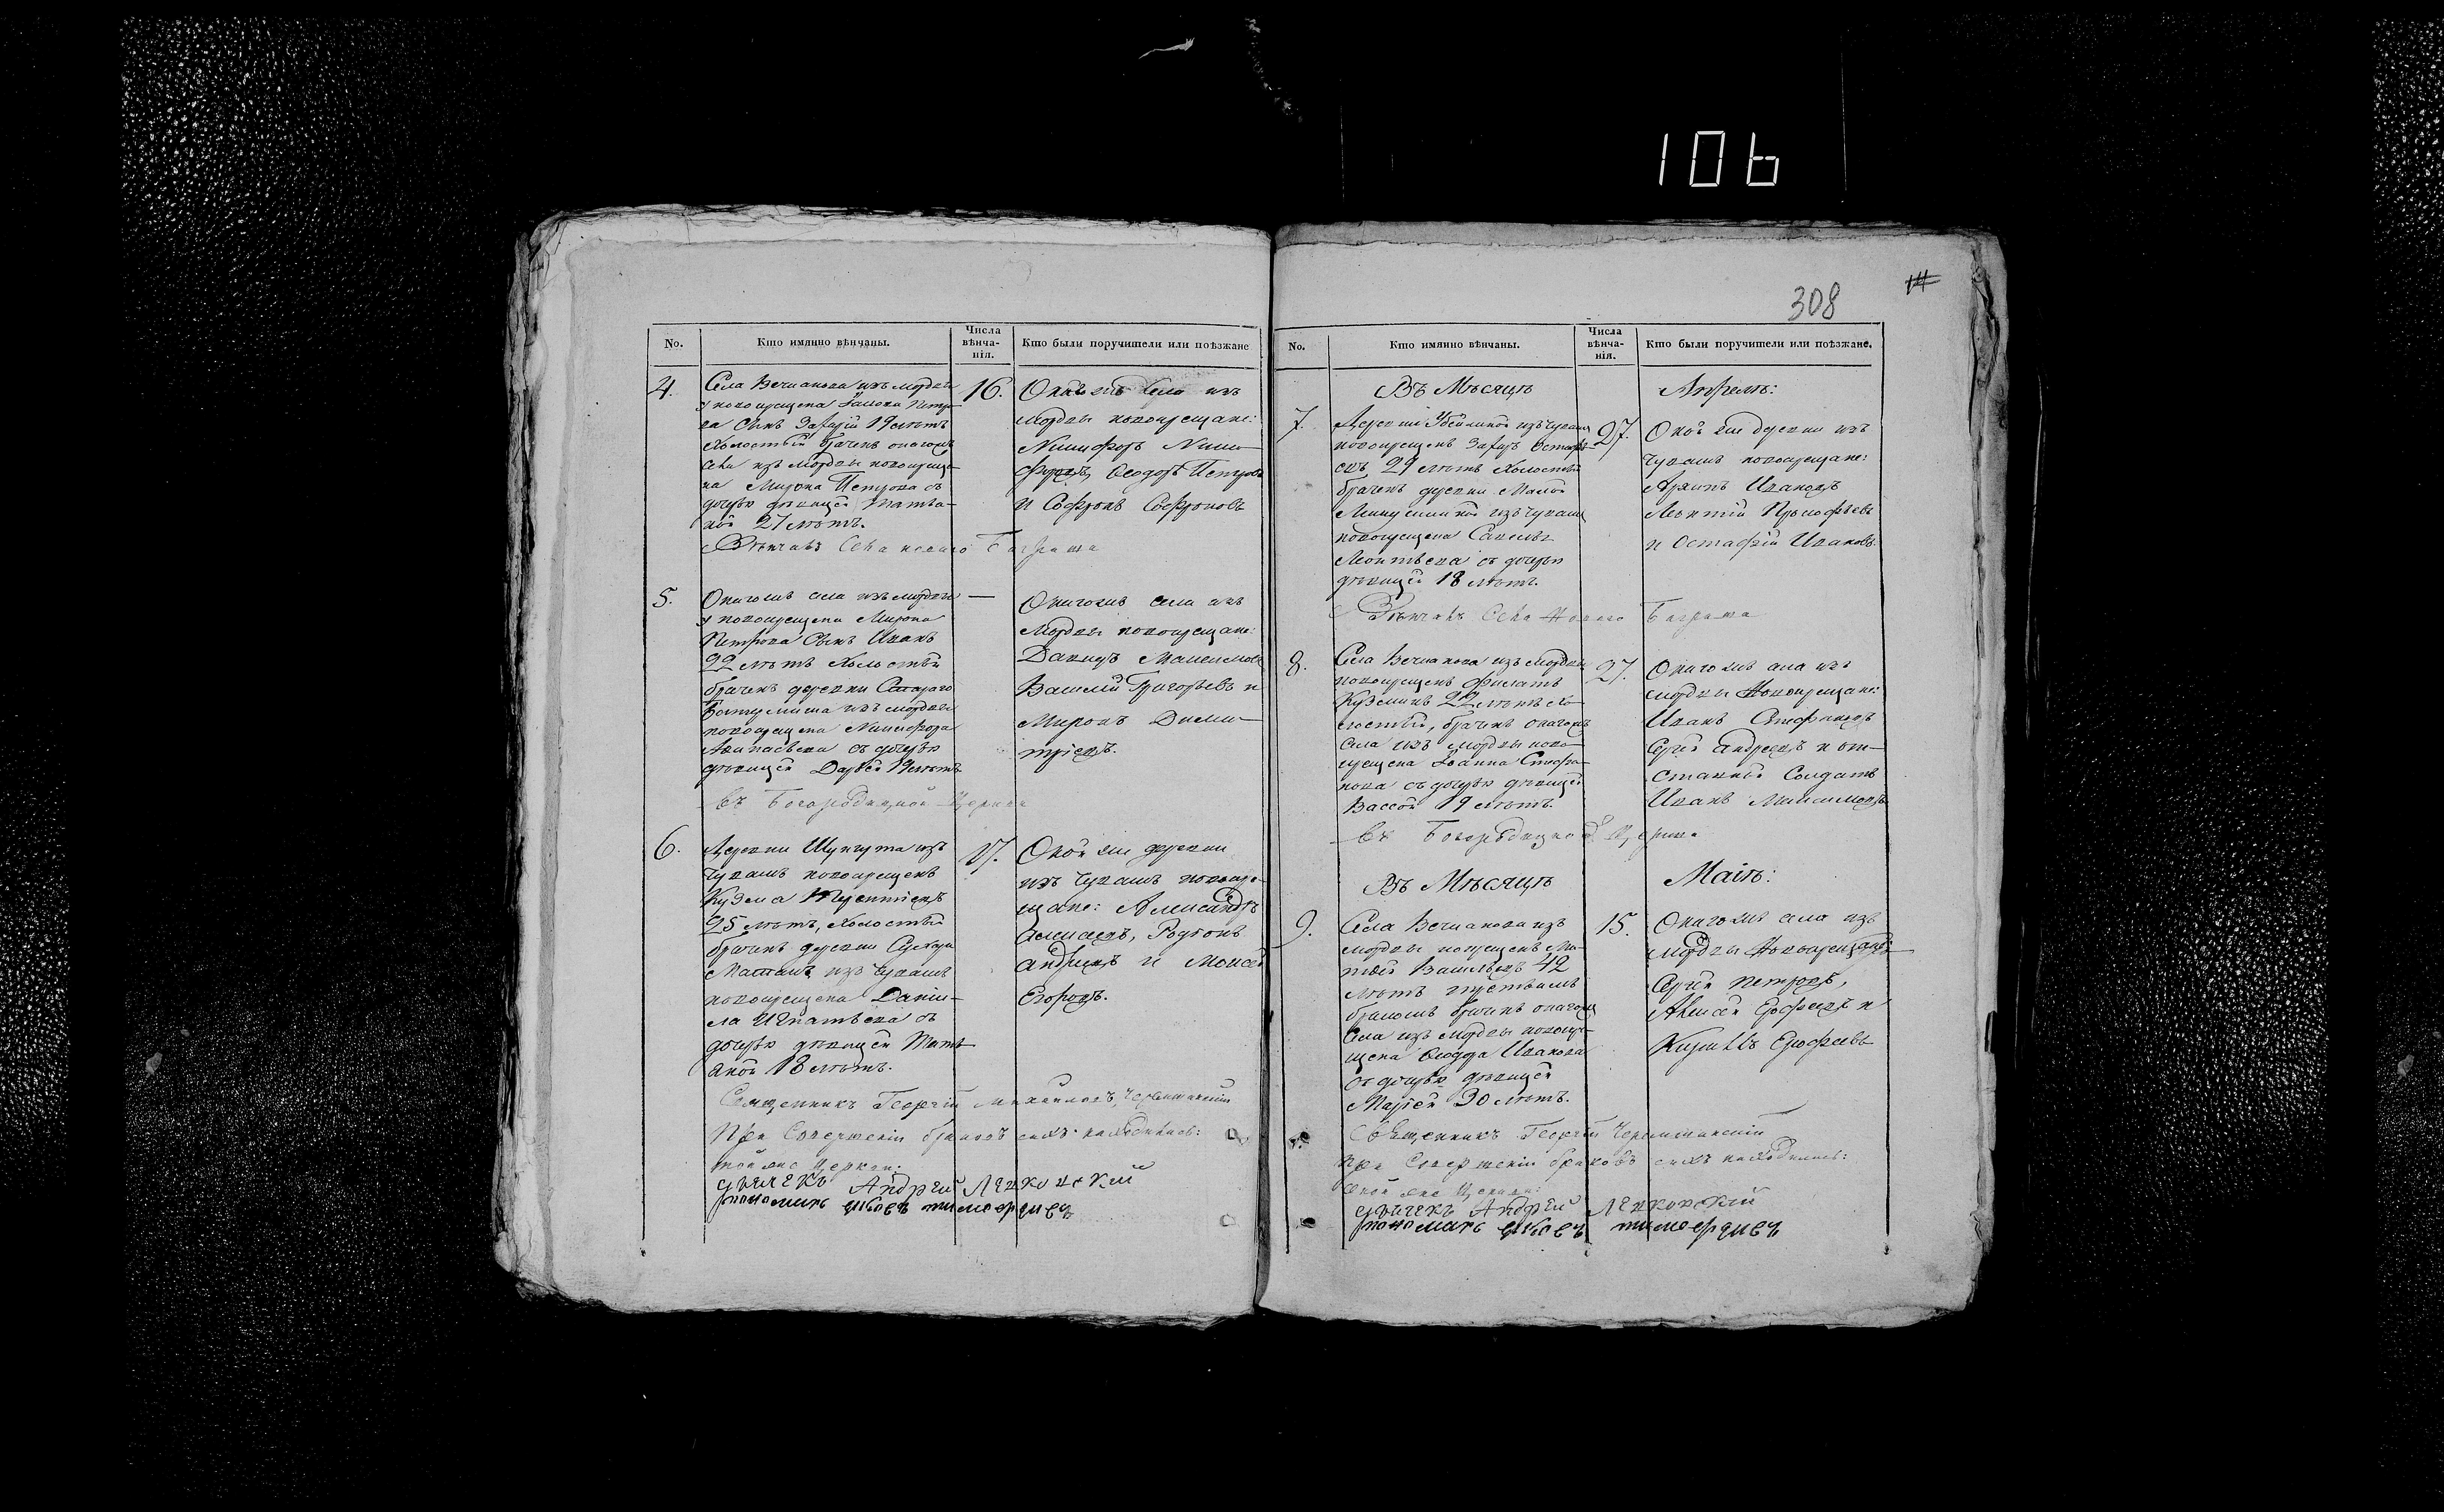 106
308
14
No.
Кто имянно вѣнчаны.
Числа вѣнча-нія.
Кто были поручители или поѣзжане
4.
Села Вечканова изъ мордвы
у новокрещена
ва сынъ Захарій 19 лѣтъ
Холостый браченъ онагожъ
села изъ мордвы новокреще-
на Мирона Петрова съ
дочерью дѣвицей Татья-
ной 21 лѣтъ.
Вѣнчанъ Села
16.
Онагожъ села изъ
мордвы новокрещане:
Никифоръ Ники-
форовъ, Ѳеодоръ Петровъ
и Софронъ Софроновъ
5.
Онагожъ села изъ мордвы
у новокрещена Мирона
Петрова сынъ Иванъ
22 лѣтъ Холостый
браченъ деревни Стараго
изъ мордвы
новокрещена Никифора
съ дочерью
дѣвицей Дарьей 19 лѣтъ
въ Богородицкой Церкви
—
Онагожъ села изъ
Мордвы новокрещане:
Давидъ Максимовъ
Василій Григорьевъ и
Миронъ Дими-
тріевъ.
6.
Деревни Шунгута изъ
Чувашъ новокрещенъ
Кузма Терентіевъ
25 лѣтъ, Холостый
браченъ деревни
изъ Чувашъ
новокрещена Дании-
ла Игнатьева съ
дочерью дѣвицей Тать-
аной 18 лѣтъ.
17.
Оной же деревни
изъ Чувашъ новокре-
щане: Александръ
Алексеевъ, Родіонъ
Андреевъ и Моисей
Егоровъ.
Священникъ Георгій Михайловъ Черемшанскій
При Совершеніи браковъ сихъ находились:
той же Церкви:
дьячекъ Андрей
пономарь Яковъ
No.
Кто имянно вѣнчаны.
Числа вѣнча-нія.
Кто были поручители или поѣзжане.
Въ Мѣсяцѣ
Апрелѣ:
7.
Деревни изъ чувашъ
новокрещенъ Захаръ Остафь-
евъ, 21 лѣтъ Холостый
браченъ деревни Малой
Микушкиной изъ чувашъ
новокрещена Савелья
Леонтьева съ дочерью
дѣвицей 18 лѣтъ.
Вѣнчанъ Села Новаго
27.
Оной же деревни изъ
Чувашъ новокрещане:
Архипъ Ивановъ
Леонтій Прокофьевъ
и Остафій Ивановъ.
8.
Села Вечканова изъ Мордвы
новокрещенъ Филатъ
Кузминъ 22 лѣтъ хо-
лостый, браченъ онагожъ
села изъ мордвы ново-
крещена Іоанна Стефа-
нова съ дочерью дѣвицей
Вассой 19 лѣтъ.
въ Богородицкой Церкви
27.
Онагожъ села изъ
мордвы Новокрещане:
Иванъ Стефановъ
Сергей Андреевъ и от-
ставной Солдатъ
Иванъ Максимовъ
Въ Мѣсяцѣ
Маіѣ:
9.
Села Вечканова изъ
мордвы новокрещенъ Ма-
твей Васильевъ 42
лѣтъ третьимъ
бракомъ браченъ онагожъ
села изъ Мордвы новокре-
щена Ѳеодора Иванова
съ дочерью дѣвицей
Маріей 30 лѣтъ.
15.
Онагожъ села изъ
Мордвы Новокрещане:
Сергей Петровъ,
Алексей Ерофеевъ и
Кирилъ Ерофеевъ
Священникъ Георгій Черемшанскій
при Совершеніи браковъ сихъ находились:
оной же Церкви:
дьячекъ Андрей
пономарь Яковъ